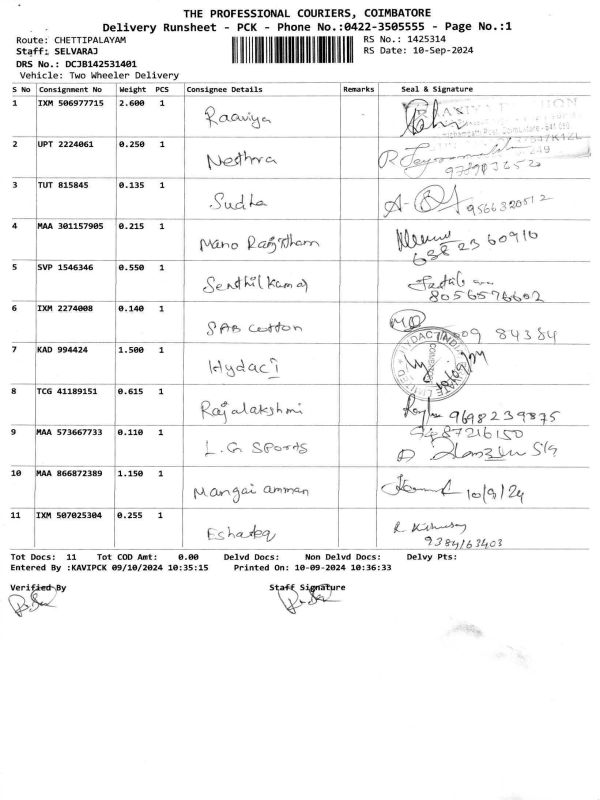 THE PROFESSIONAL COURIERS, COIMBATORE
Delivery Runsheet - PCK - Phone No.:0422-3505555 - Page No.:1
Route: CHETTIPALAYAM RS No.: 1425314
Staff: SELVARAJ RS Date: 10-Sep-2024
DRS No.: DCJB142531401
Vehicle: Two Wheeler Delivery
S No Consignment No Weight PCS Consignee Details Remarks Seal & Signature
1 IXM 506977715 2.600 1 Raaviya
2 UPT 2224061 0.250 1 Nethra
3 TUT 815845 0.135 1 Sudha 9566320512
4 MAA 301157905 0.215 1 Mano Ranjitham
5 SVP 1546346 0.550 1 Senthil Kumar 8056576602
6 IXM 2274008 0.140 1 SAB Cotton 84384
7 KAD 994424 1.500 1 Hydac
8 TCG 41189151 0.615 1 Rajalakshmi 9698239875
9 MAA 573667733 0.110 1 L.G SPORTS 9487216150
10 MAA 866872389 1.150 1 Mangai amman 10/9/24
11 IXM 507025304 0.255 1 9384163403
Tot Docs: 11 Tot COD Amt: 0.00 Delvd Docs: Non Delvd Docs: Delvy Pts:
Entered By :KAVIPCK 09/10/2024 10:35:15 Printed On: 10-09-2024 10:36:33
Verified By Staff Signature